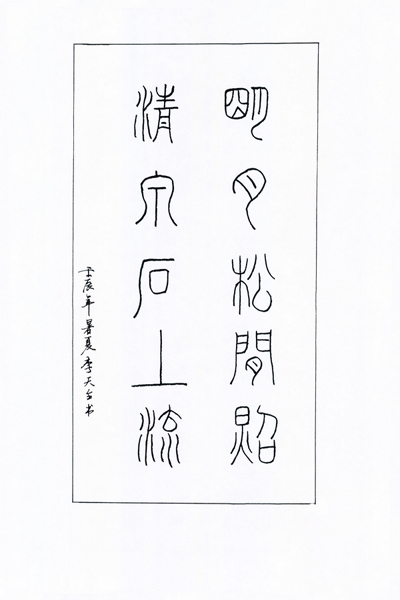 明月松間照
清泉石上流
壬辰年暑夏李天台书